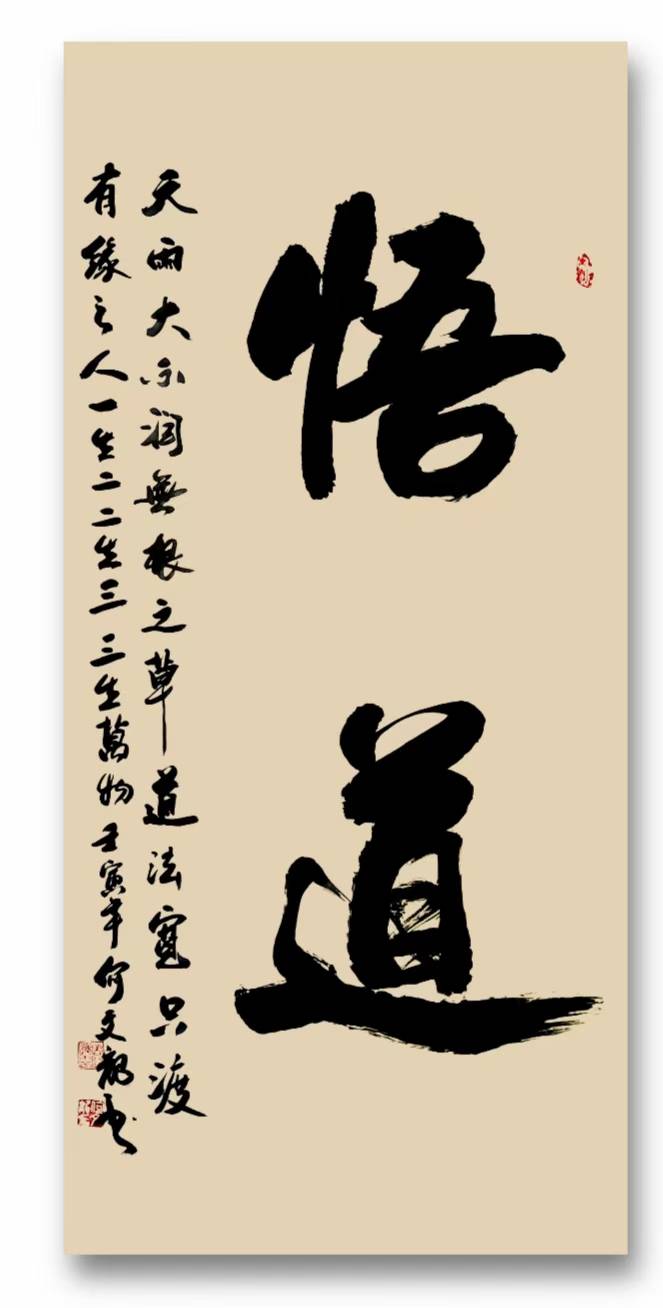 悟道
天雨大不润無根之草道法寬只渡
有緣之人一生二二生三三生萬物壬寅年何文